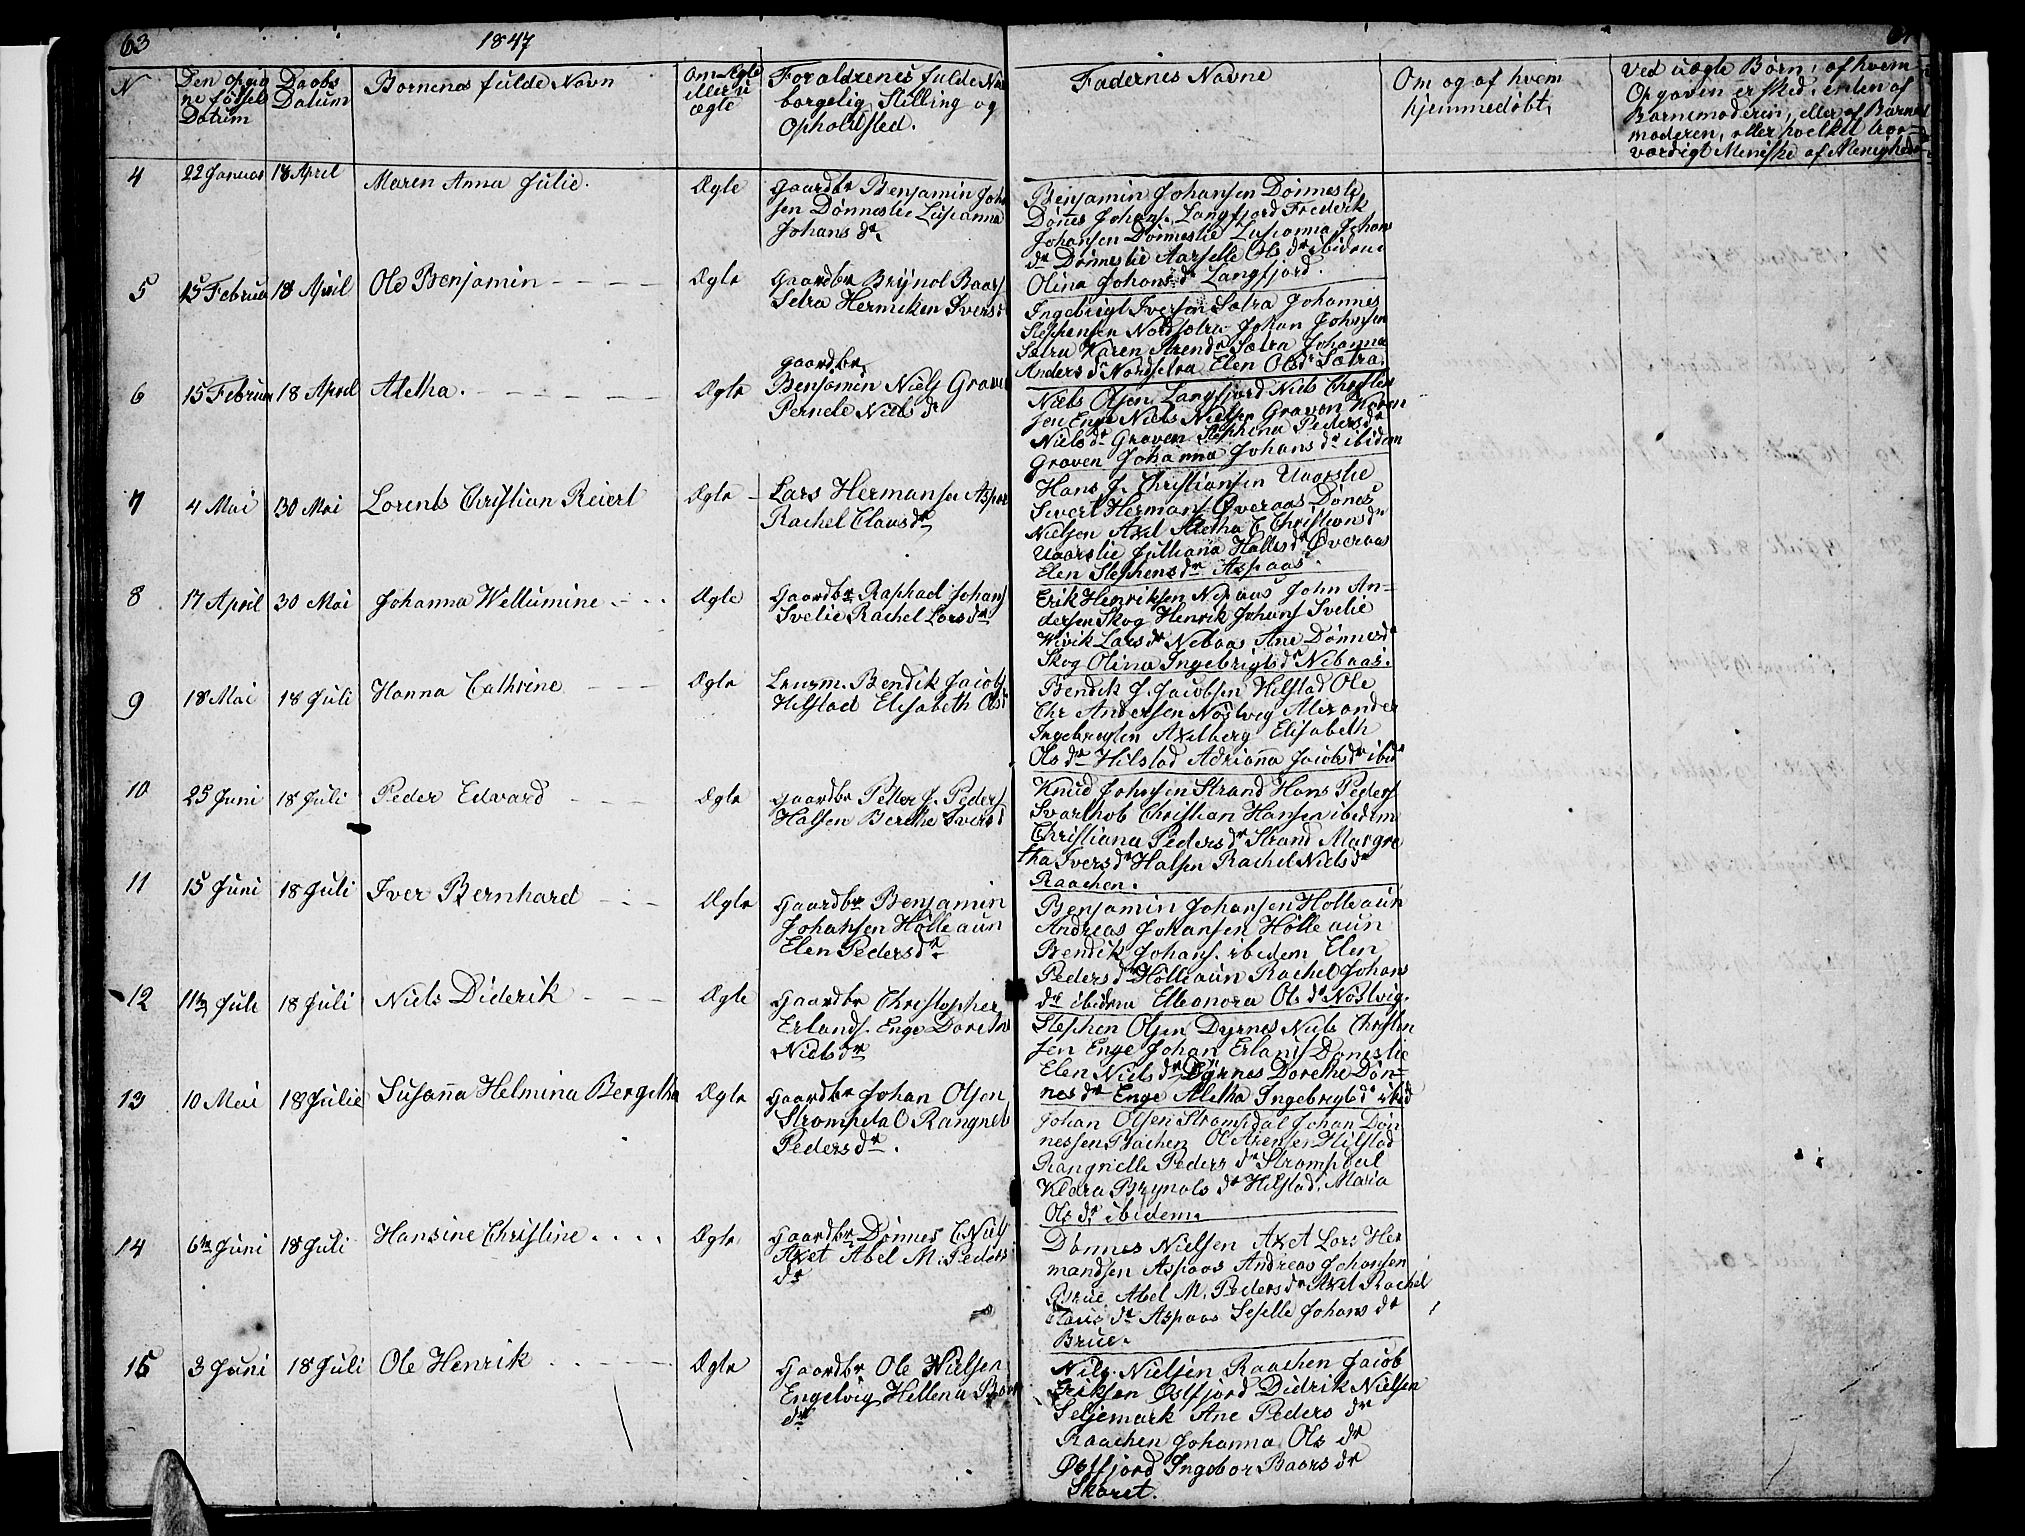 63
1847
N
Den opgiv
ne fødsel
Datum
Daabs
Datum
Børnenes fulde Navn
Om Ægte
eller u
ægte
Forældrenes fulde Nav
borgelig Stilling og
Opholdsted.
Faderne's Navne
Om og af hvem
hjemmedøbt,
Ved uægte Børn: af hvem
Opgaven er sked: enten af
Barnemoderen, eller af Barne
moderen, eller hvelket troe
værdigt Meniske af Menighed
4
22 Januar
18 April
Maren Anna Julie.
Ægte
Gaardbr Benjamin Joha
sen Dönneslie Lusianna
Johans dr
Benjamin Johansen Dönneslie
Dönes Johans. Langfjord Frederik
Johansen Dönneslie Lusianna Johans
dr Dönneslie Aarselle Ols dr ibidem
Olina Johans dr Langfjord.
5
15 Februar
18 April
Ole Benjamin
Ægte
Gaardbr Brijnol Baars
Setra Hermiken Ivers d
Ingebrigt Iversen Sætra Johannes
Stephensen Nordsætra Johan Johnsen
Sætra Karen Arends Sætra Johanna
Anders dr Nordsetra Elen Ols dr Sætra
6
15 Februar
18 April
Aletha.
Ægte
Gaardbr
Benjamin Niels Graven
Pernele Niels dr
Niels Olsen Langfjord Niels Christen
sen Enge Niels Nielsen Graven Karen
Niels dr Graven Stephena Peders dr
Graven Johanna Johans dr ibidem
7
4 Mai
30 Mai
Lorents Christian Reiert
Ægte
Lars Hermansen Aspaa
Rachel Claus dr
Hans J. Christiansen Uaarslie
Sivert Hermans Øveraas Dönes
Nielsen Axel Aletha C Christians dr
Uaarslie Julliana Halles dr Øveraas
Elen Stephens dr Aspaas.
8
17 April
30 Mai
Johanna Wellumine
Ægte
Gaardbr Raphael Johans
Svelie Rachel Lars dr
Erik Henriksen Nepaas John An-
dersen Skog Henrik Johans Svelie
Wivik Lars dr Nebaas Ane Dönnes dr
Skog Olina Ingebrigts dr Nebaas.
9
18 Mai
18 Juli
Hanna Cathrine
Ægte
Bendik Jacobs
Hilstad Elisabeth Ols d
Bendik J. Jacobsen Hilstad Ole
Chr Andersen Nöstvig Alexander
Ingebregtsen Axelberg Elisabeth
Ols dr Hilstad Adrianna Jacobs dr ibid
10
25 Juni
18 Juli
Peder Edvard
Ægte
Gaardbr Petter J. Peders
Halsen Berethe Ivers d
Knud Johnsen Strand Hans Peders
Svarthob Christian Hansen ibidem
Christiana Peders dr Strand Margre
tha Ivers dr Halsen Rachel Niels dr
Raachen.
11
15 Juni
18 Juli
Iver Bernhard
Ægte
Gaardbr Benjamin
Johansen Hölleaun
Elen Peders dr
Benjamin Johansen Hölleaun
Andreas Johansen Hölle aun
Bendik Johans. ibidem Elen
Peders dr Hölleaun Rachel Johans
dr ibidem Elleonora Ols dr Nöstvig.
12
11te Juli
18 Juli
Niels Diderik
Ægte
Gaardbr Christopher
Erlands. Enge Dorethe
Niels dr
Stephen Olsen Dyrnes Niels Christen
sen Enge Johan Erlands Döneslie
Elen Niels dr Dyrnes Dorethe Dön-
nes dr Enge Aletha Ingebregts dr ibid
13
10 Mai
18 Julie
Susanna Helmina Bergitha
Ægte
Gaardbr Johan Olsen
Strompdal Rangnele
Peders dr.
Johan Olsen Strompdal Johan Dön
nessen Raachen Ol Arensen Hilstad
Rangnelle Peders dr Strompdal
Kldra Brynols dr Hilstad. Maria
Ols dr ibidem.
14
6te Juni
18 Juli
Hansine Christine
Ægte
Gaardbr Dönnes C Niels
Axet Abel M. Peders
dr
Dönnes Nielsen Axet Lars Her
mandsen Aspaas Andreas Johansen
Brue Abel M. Peders dr Axel Rachel
Claus dr Aspaas Leselle Johans dr
Brue.
15
3 Juni
18 Juli
Ole Henrik
Ægte
Gaardbr Ole Nielsen
Engelvig Hellena Baar
dr
Nils Nielsen Raachen Jacob
Eriksen Østfjord Didrik Nielsen
Seljemark Ane Peders dr
Raachen Johanna Ols dr
Østfjord Ingebor Baars dr
Skaret.